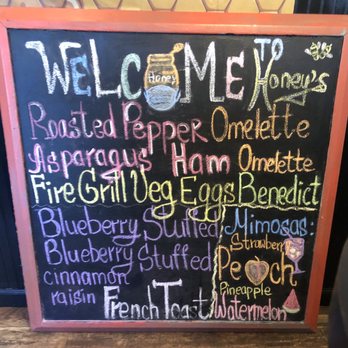 WELCOME TO
Honey
Honey's
Roasted Pepper Omelette
Asparagus Ham Omelette
Fire Grill Veg Eggs Benedict
Blueberry Stuffed
Blueberry Stuffed
cinnamon
raisin
French Toast
Mimosas:
Strawberry
Peach
Pineapple
Watermelon